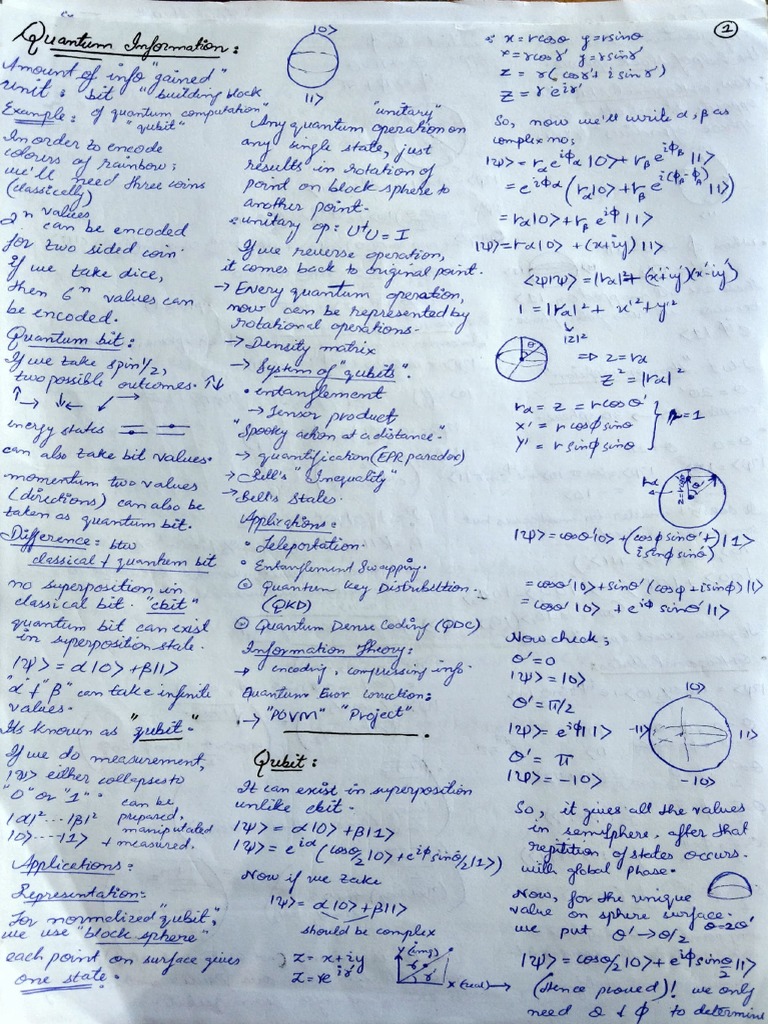 Quantum Information:
Amount of info "gained"
unit: bit "building block
of quantum computation"
Example: "qubit"
In order to encode
colours of rainbow;
we'll need three coins
(classically)
2^n values
can be encoded
for two sided coin.
If we take dice,
then 6^n values can
be encoded.
Quantum bit:
If we take spin 1/2,
two possible outcomes. ↑↓
energy states
can also take bit values.
momentum two values
(directions) can also be
taken as quantum bit.
Difference: btw
classical & quantum bit
no superposition in
classical bit. "cbit"
quantum bit can exist
in superposition state.
|ψ> = α|0> + β|1>
"α & β" can take infinite
values.
Its known as "qubit."
If we do measurement,
|ψ> either collapses to
"0" or "1"
|α|² ... |β|²
|0> ... |1>
can be
prepared,
manipulated
+ measured.
Applications:
Representation:
For normalized "qubit",
we use "block sphere"
each point on surface gives
one state.
|0>
|1>
"unitary"
Any quantum operation on
any single state, just
results in rotation of
point on block sphere to
another point.
unitary op: U†U = I
If we reverse operation,
it comes back to original point.
→ Every quantum operation,
now can be represented by
rotational operations.
→ Density matrix
→ System of "qubits".
• entanglement
→ Tensor product
"Spooky action at a distance"
→ quantification (EPR paradox)
→ Bell's "Inequality"
→ Bell's States.
Applications:
• Teleportation.
• Entanglement Swapping.
⊙ Quantum Key Distribution.
(QKD)
⊙ Quantum Dense Coding (QDC)
Information Theory:
→ encoding, compressing info.
Quantum Error correction:
→ "POVM" "Project"
Qubit:
It can exist in superposition
unlike cbit.
|ψ> = α|0> + β|1>
|ψ> = e^iα (cosθ/2|0> + e^iφ sinθ/2|1>)
Now if we take
|ψ> = α|0> + β|1>
should be complex
z = x + iy
z = re^iγ
y (img)
r
γ
x (real)
①
x = rcosθ y = rsinθ
x = rcosγ y = rsinγ
z = r(cosγ + i sinγ)
z = re^iγ
So, now we'll write α, β as
complex no;
|ψ> = rα e^iφα |0> + rβ e^iφβ |1>
= e^iφα (rα|0> + rβ e^i(φβ-φα) |1>)
= rα|0> + rβ e^iφ |1>
|ψ> = rα|0> + (x+iy)|1>
<ψ|ψ> = |rα|² + (x'+iy')(x'-iy')
1 = |rα|² + x'² + y'²
|z|²
θ
⇒ z = rα
z² = |rα|²
rα = z = rcosθ'
x' = r cosφ sinθ
y' = r sinφ sinθ
r = 1
rα
z = rcosθ
θ'
|ψ> = cosθ'|0> + (cosφ sinθ' + i sinφ sinθ')|1>
= cosθ'|0> + sinθ' (cosφ + i sinφ)|1>
= cosθ'|0> + e^iφ sinθ'|1>
Now check;
θ' = 0
|ψ> = |0>
θ' = π/2
|ψ> = e^iφ|1>
θ' = π
|ψ> = -|0>
|0>
-|1>
|1>
-|0>
So, it gives all the values
in semisphere, after that
repitition of states occurs.
with global phase.
Now, for the unique
value on sphere surface.
we put θ' → θ/2
θ = 2θ'
|ψ> = cosθ/2|0> + e^iφ sinθ/2|1>
(Hence proved)! we only
need θ & φ to determine